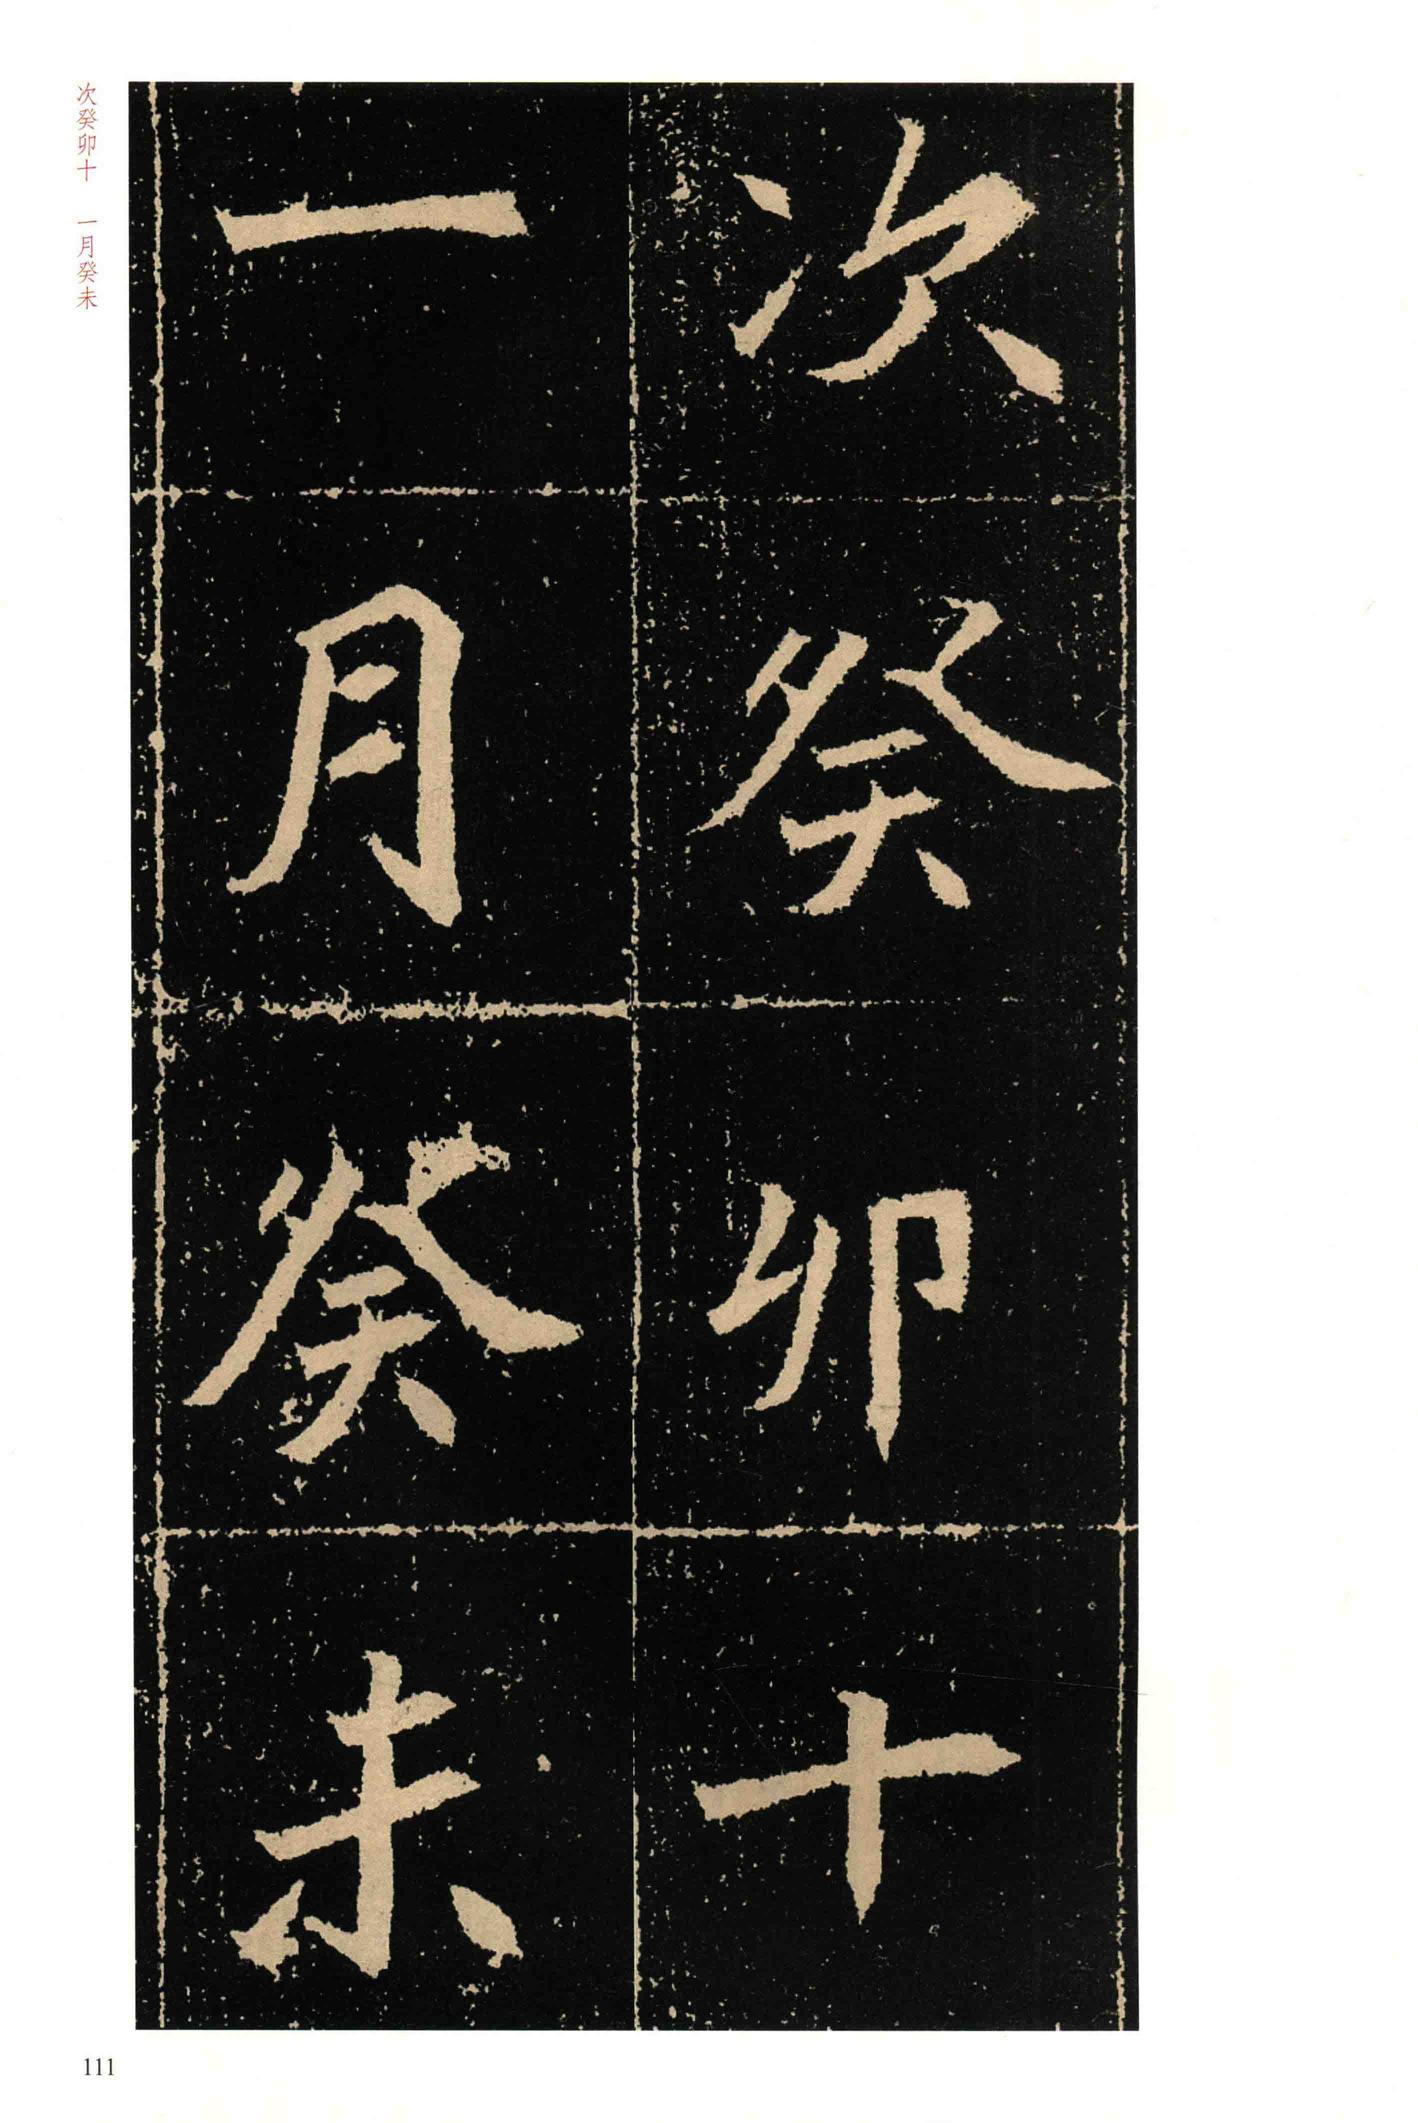 次癸卯十
一月癸未
次癸卯十 一月癸未
111